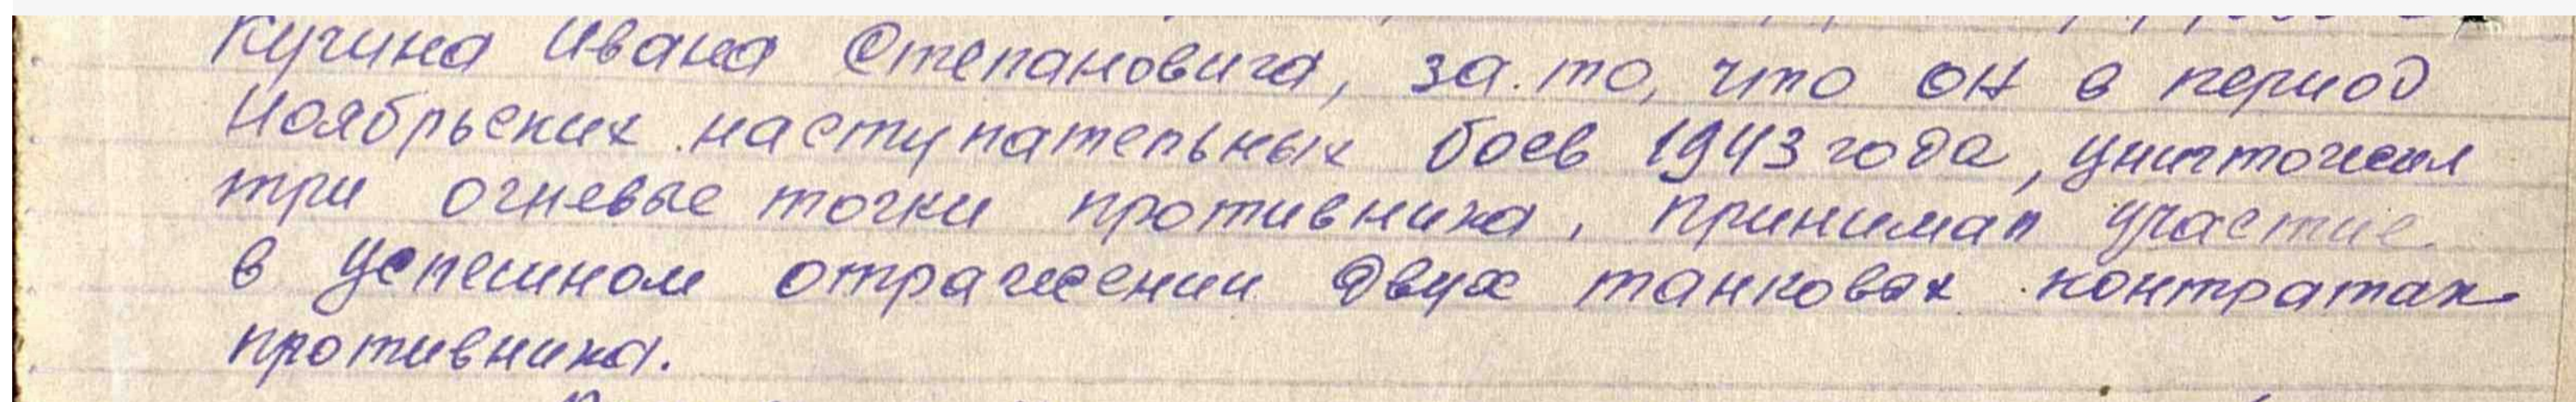 Кучина Ивана Степановича, за то, что он в период
Ноябрьских наступательных боев 1943 года, уничтожил
три огневые точки противника, принимал участие
в успешном отражении двух танковых контратак
противника.